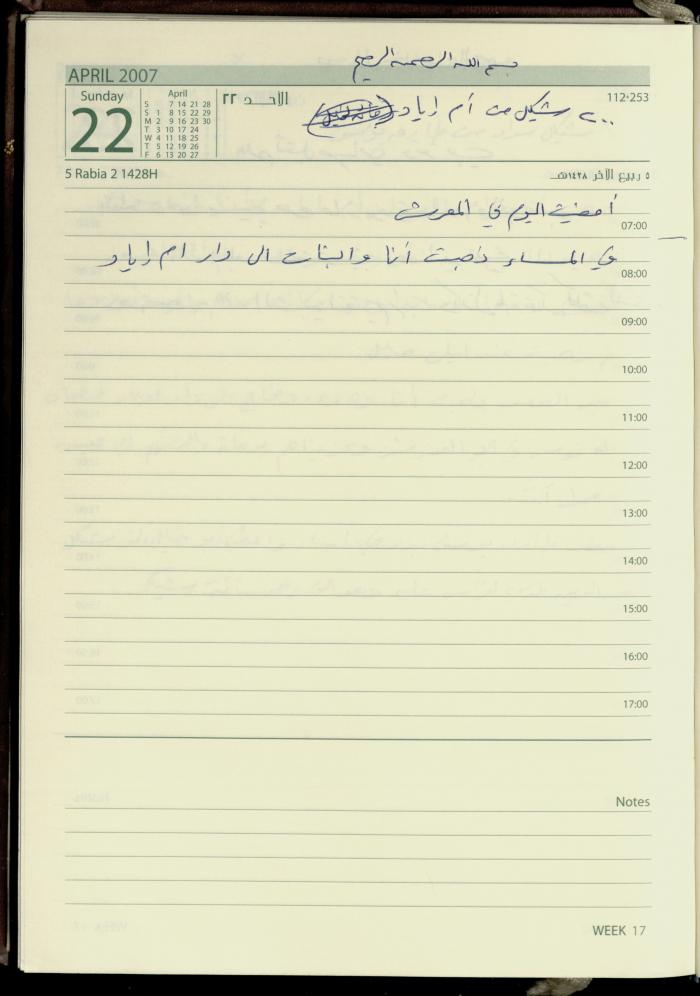 بسم الله الرحمن الرحيم
APRIL 2007
Sunday
22
April
S 7 14 21 28
S 1 8 15 22 29
M 2 9 16 23 30
T 3 10 17 24
W 4 11 18 25
T 5 12 19 26
F 6 13 20 27
الأحد ٢٢
112-253
٢٠٠ شيكل من أم إياد
5 Rabia 2 1428H
٥ ربيع الآخر ١٤٢٨هـ
أمضيت اليوم في المعرض
07:00
في المساء ذهبت أنا والبنات الى دار ام إياد
08:00
09:00
10:00
11:00
12:00
13:00
14:00
15:00
16:00
17:00
Notes
WEEK 17